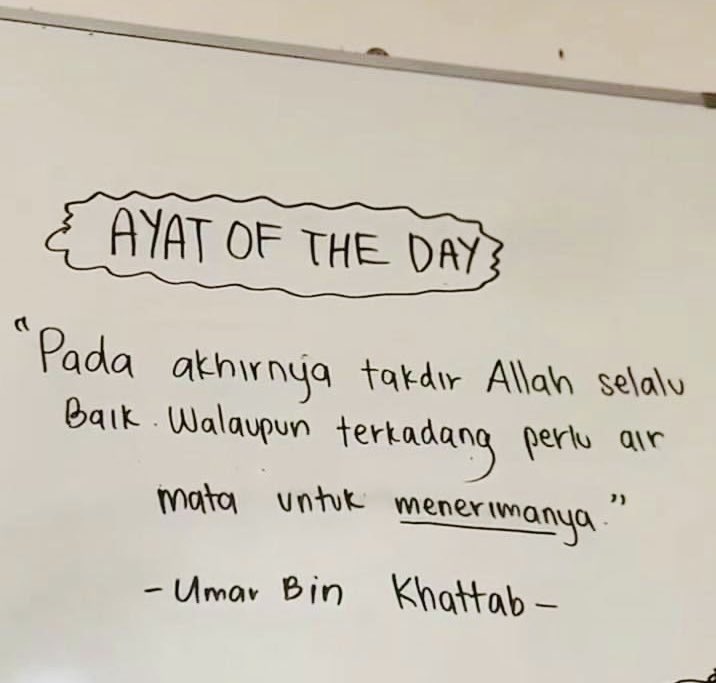 AYAT OF THE DAY
"Pada akhirnya takdir Allah selalu
Baik. Walaupun terkadang perlu air
mata untuk menerimanya."
- Umar Bin Khattab -